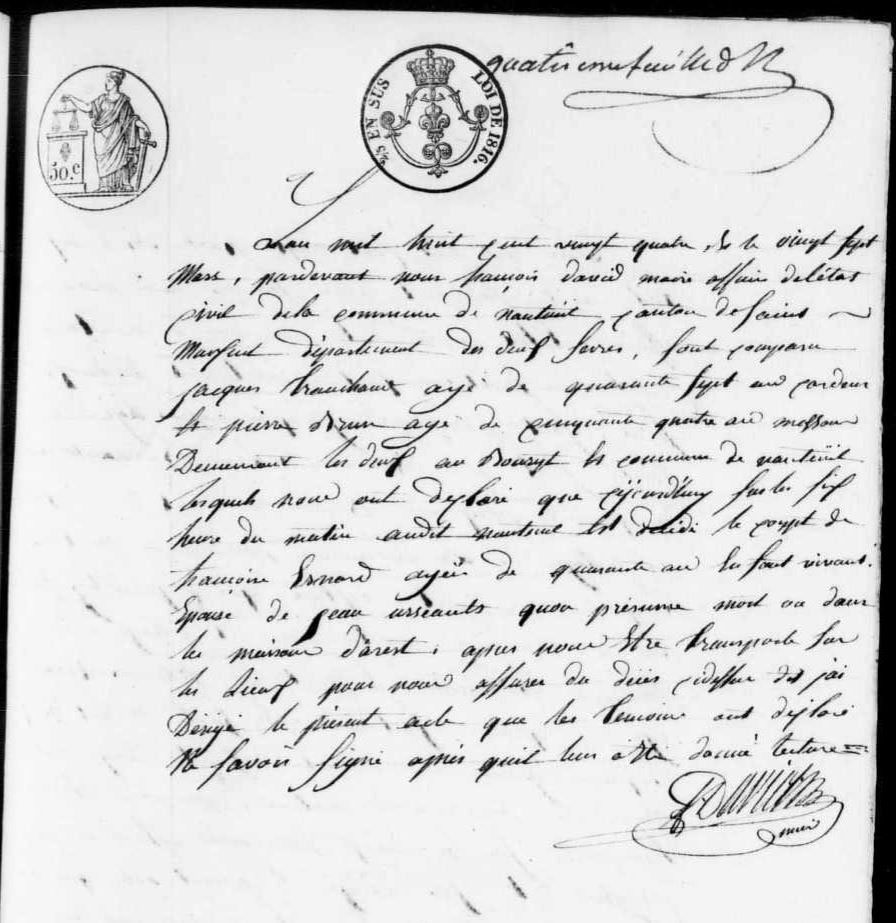 quatrieme feuille d
2/5 EN SUS LOI DE 1816.
50.c
Lan mil huit cent vingt quatre, & le vingt sept
Mars, pardevant nous françois david maire officier deletat
civil dela commune de nanteuil canton de Saint
Maixent département des deux Sevres, sont comparu
jacques trouchant agé de quarante sept ans cardeur
Et pierre brun agé de cinquante quatre ans
Demeurant les deux au Bourgt Et commune de nanteuil
lesquels nous ont declaré que cejourdhuy sur les six
heure du matin audit nanteuil Est décédé le corps de
françoise Esnard ageé de quarante ans En son vivant
Epouse de jean quon présume mort ou dans
les maison d'arest, apres nous Etre transporté sur
les lieux pour nous assurer du déces cidessus dit jai
Dérigé le présent acte que les temoins ont declaré
Ne savoir signé après quil leur a Eté donné lecture =
David
maire